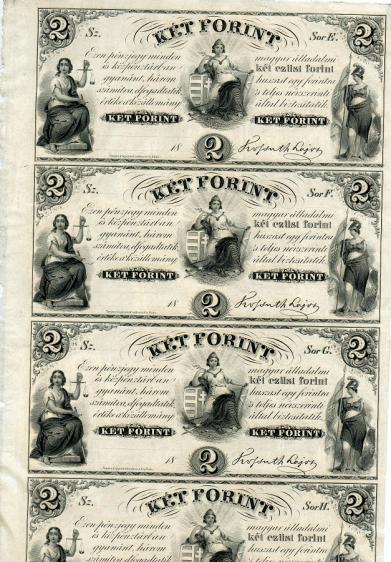 2 KÉT FORINT 2
Sz. Sor E.
Ezen pénzjegy minden magyar álladalmi
és közpénztárban két ezüst forint
gyanánt, három huszast egy forintra
számítva, elfogadtatik, s teljes névszerinti
értéke a közállomány által biztosíttatik.
KÉT FORINT KÉT FORINT
18 2 Kossuth Lajos
2 KÉT FORINT 2
Sz. Sor F.
Ezen pénzjegy minden magyar álladalmi
és közpénztárban két ezüst forint
gyanánt, három huszast egy forintra
számítva, elfogadtatik, s teljes névszerinti
értéke a közállomány által biztosíttatik.
KÉT FORINT KÉT FORINT
18 2 Kossuth Lajos
2 KÉT FORINT 2
Sz. Sor G.
Ezen pénzjegy minden magyar álladalmi
és közpénztárban két ezüst forint
gyanánt, három huszast egy forintra
számítva, elfogadtatik, s teljes névszerinti
értéke a közállomány által biztosíttatik.
KÉT FORINT KÉT FORINT
18 2 Kossuth Lajos
2 KÉT FORINT 2
Sz. Sor H.
Ezen pénzjegy minden magyar álladalmi
és közpénztárban két ezüst forint
gyanánt, három huszast egy forintra